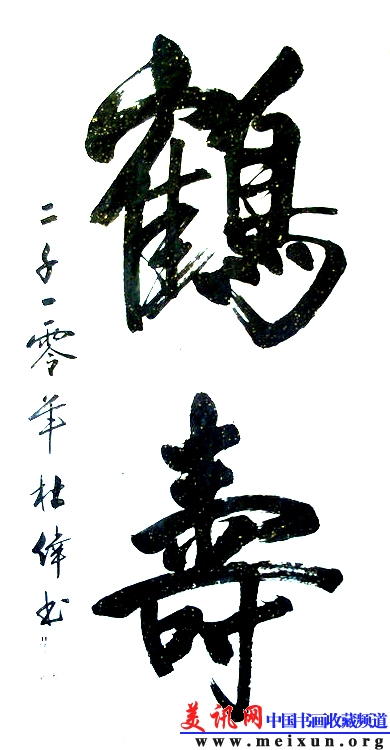 鶴壽
二千一零年杜偉书
美讯网 中国书画收藏频道
www.meixun.org